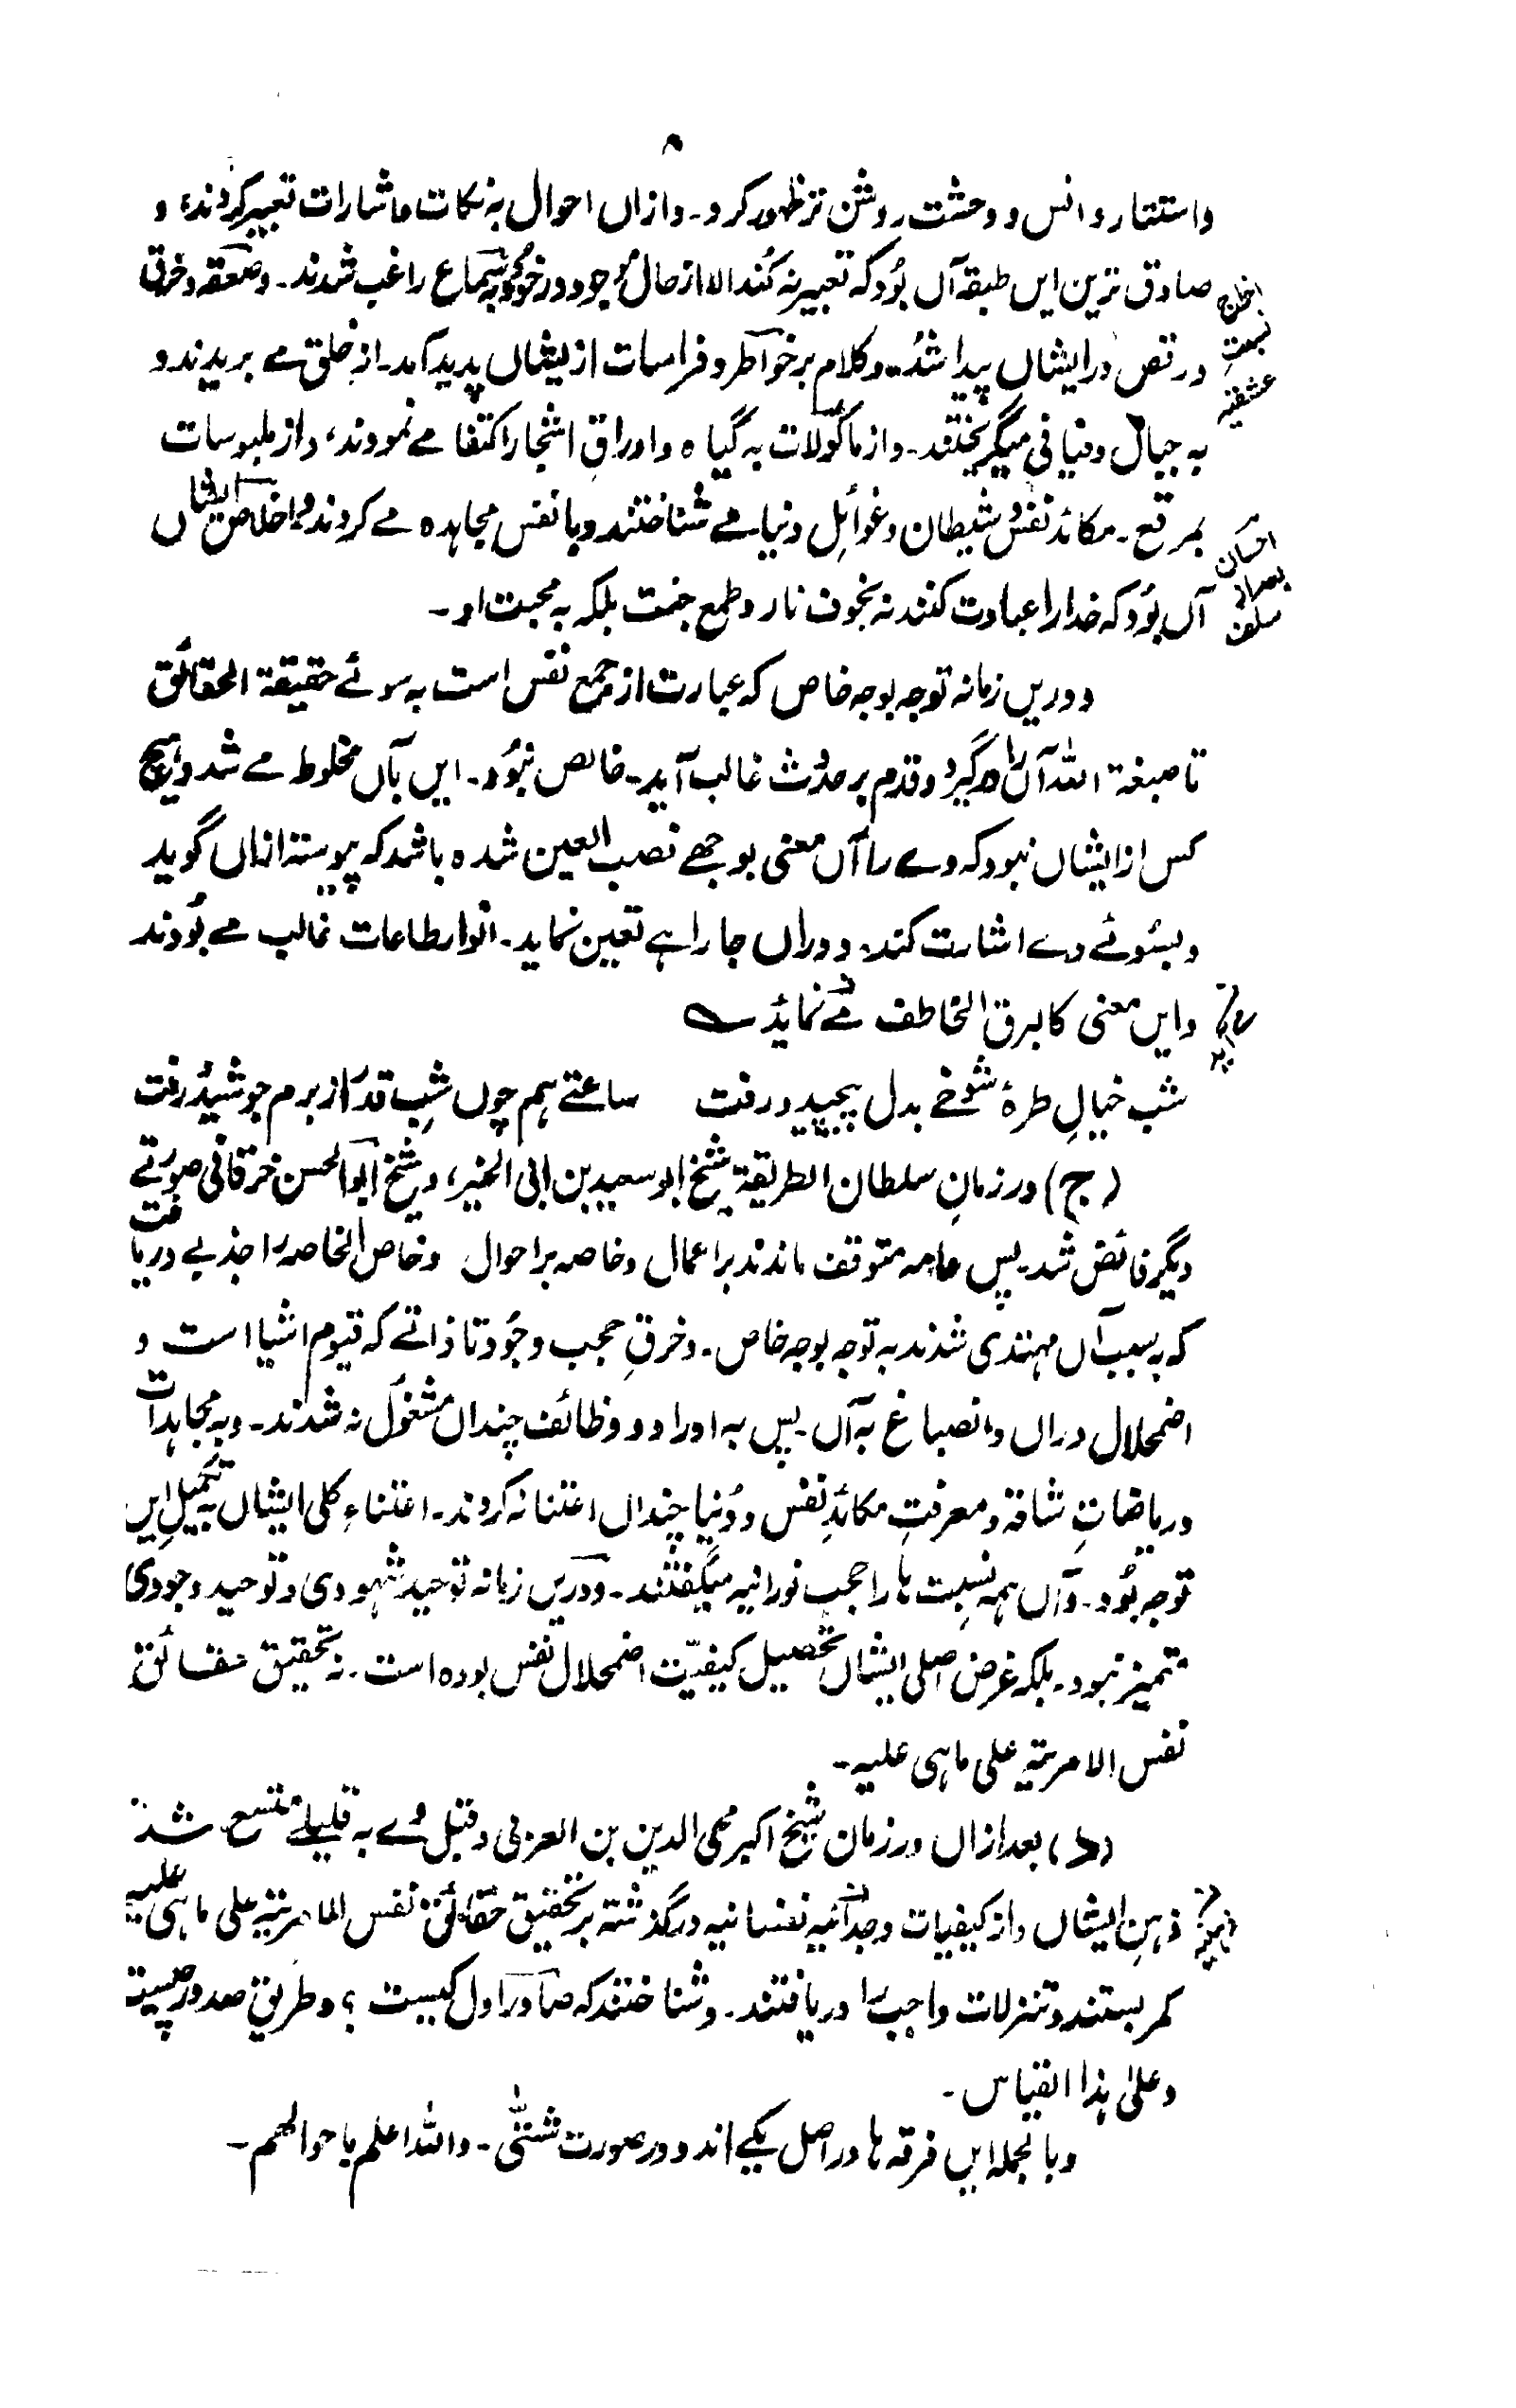 ۸
واستتار و انس و وحشت روشن تر ظهور کرد۔ وازاں احوال بہ نکات و اشارات تعبیر کردند، و
صادق ترین ایں طبقہ آں بُود کہ تعبیر نہ کُند الا از حال موجود در خود و بہ سماع راغب شدند۔ و صعقہ و خرق
و رقص در ایشاں پیدا شد۔ و کلام بر خواطر و فراسات از یشاں پدید آمد۔ از خلق مے بریدند و
بہ جبال و فیافی میگریختند۔ و از ماکولات بہ گیاہ و اوراقِ اشجار اکتفا مے نمودند، و از ملبوسات
بمرقع۔ مکائد نفس و شیطان و غوائلِ دنیا مے شناختند و با نفس مجاہدہ مے کردند و اخلاص ایشاں
آں بُود کہ خدا را عبادت کنند نہ بخوف نار و طمع جنت بلکہ بہ محبت او۔
و دریں زمانہ توجہ بوجہ خاص کہ عبارت از جمع نفس است بہ سوئے حقیقۃ الحقائق
تا صبغۃ اللہ آں را درگیرد و قدم بر حدُوث غالب آید۔ خالص نبُود۔ ایں بآں مخلوط مے شد و ہیچ
کس از ایشاں نبود کہ وے را آں معنی بوجھے نصب العین شدہ باشد کہ پیوستہ ازاں گوید
و بسُوئے وے اشارت کند، و دراں جا راہے تعین نماید۔ انوار طاعات غالب مے بُودند
و ایں معنی کالبرق الخاطف مے نماید ؎
شب خیالِ طرۂ شوخے بدل پیچید و رفت     ساعتے ہم چوں شبِ قدر از برم جوشید و رفت
(ج) در زمانِ سلطان الطریقۃ شیخ ابو سعید بن ابی الخیر، و شیخ ابوالحسن خرقانی صورتے
دیگر فائض شد۔ پس عامہ متوقف ماندند بر اعمال و خاصہ بر احوال و خاص الخاصہ را جذبے دریافت
کہ بہ سبب آں مہتدی شدند بہ توجہ بوجہ خاص۔ و خرقِ حجب وجُود تا ذاتے کہ قیوم اشیا است و
اضمحلال دراں و انصباغ بہ آں۔ پس بہ اوراد و وظائف چنداں مشغول نہ شدند۔ و بہ مجاہدات
و ریاضاتِ شاقہ و معرفتِ مکائدِ نفس و دُنیا چنداں اعتنا نہ کردند۔ اعتناءِ کلی ایشاں بہ تکمیلِ ایں
توجہ بُود۔ و آں ہمہ نسبت ہا را حجب نورانیہ میگفتند۔ و دریں زمانہ توحید شہودی و توحید وجودی
متمیز نبود۔ بلکہ غرض اصلی ایشاں تحصیل کیفیّت اضمحلال نفس بودہ است۔ نہ تحقیق حقائق
نفس الامریّہ علی ماہی علیہ۔
(د) بعد ازاں در زمان شیخ اکبر محی الدین بن العربی و قبل وے بہ قلیلے متسع شد
ذہنِ ایشاں و از کیفیات وجدانیہ نفسانیہ در گذشتہ بر تحقیق حقائق نفس الامریہ علی ماہی علیہ
کمر بستند و تنزلات واجب را دریافتند۔ و شناختند کہ صادر اول کیست ؟ و طریق صدور چیست
و علیٰ ہذا القیاس۔
و بالجملہ ایں فرقہ ہا در اصل یکے اند و در صورت شتّٰی۔ واللہ اعلم باحوالھم۔
نسبت
عشقیہ
احسان